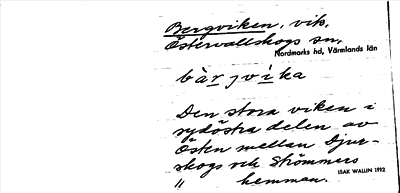 Bergviken, vik,
Östervallskogs sn,
Nordmarks hd, Värmlands län
bàrjvika
Den stora viken i
sydöstra delen av
Östen mellan Djur-
skogs och Strömmers
" hemman.
ISAK WALLIN 1992